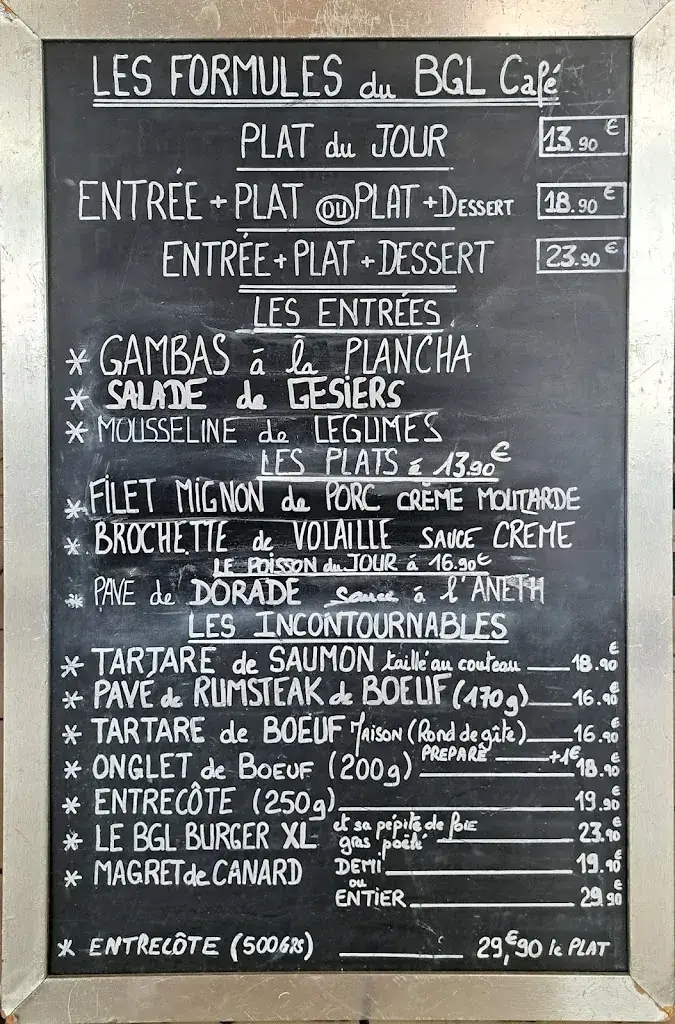 LES FORMULES du BGL Café
PLAT du JOUR 13.90 €
ENTRÉE + PLAT OU PLAT + DESSERT 18.90 €
ENTRÉE + PLAT + DESSERT 23.90 €
LES ENTRÉES
* GAMBAS á à la PLANCHA
* SALADE de GESIERS
* MOUSSELINE de LEGUMES
LES PLATS á 13.90 €
* FILET MIGNON de PORC CRÈME MOUTARDE
* BROCHETTE de VOLAILLE SAUCE CREME
LE POISSON du JOUR á 16.90 €
* PAVE de DORADE Sauce à l'ANETH
LES INCONTOURNABLES
* TARTARE de SAUMON taillé au couteau 18.90 €
* PAVÉ de RUMSTEAK de BOEUF (170g) 16.90 €
* TARTARE de BOEUF MAISON (Rond de gîte) 16.90 €
PREPARÉ +1€
* ONGLET de BOEUF (200g) 18.90 €
* ENTRECÔTE (250g) 19.90 €
* LE BGL BURGER XL et sa pépite de FOIE
gras poêlé 23.90 €
* MAGRET de CANARD DEMI 19.90 €
ou
ENTIER 29.90 €
* ENTRECÔTE (500GRS) 29,€90 le PLAT